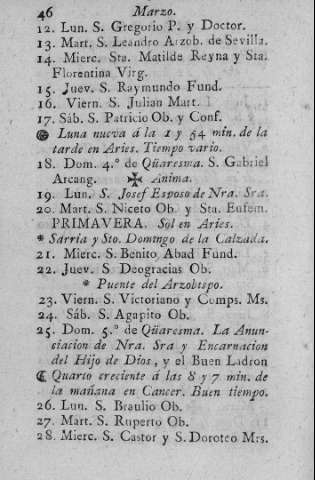 46 Marzo.
12. Lun. S. Gregorio P. y Doctor.
13. Mart. S. Leandro Arzob. de Sevilla.
14. Mierc. Sta. Matilde Reyna y Sta.
Florentina Virg.
15. Juev. S. Raymundo Fund.
16. Viern. S. Julian Mart.
17. Sáb. S. Patricio Ob. y Conf.
Luna nueva á la 1 y 54 min. de la
tarde en Aries. Tiempo vario.
18. Dom. 4.º de Qüaresma. S. Gabriel
Arcang. ✠ Anima.
19. Lun. S. Josef Esposo de Nra. Sra.
20. Mart. S. Niceto Ob. y Sta. Eufem.
PRIMAVERA. Sol en Aries.
* Sarria y Sto. Domingo de la Calzada.
21. Mierc. S. Benito Abad Fund.
22. Juev. S. Deogracias Ob.
* Puente del Arzobispo.
23. Viern. S. Victoriano y Comps. Ms.
24. Sáb. S. Agapito Ob.
25. Dom. 5.º de Qüaresma. La Anun-
ciacion de Nra. Sra y Encarnacion
del Hijo de Dios, y el Buen Ladron
Quarto creciente á las 8 y 7 min. de
la mañana en Cancer. Buen tiempo.
26. Lun. S. Braulio Ob.
27. Mart. S. Ruperto Ob.
28. Mierc. S. Castor y S. Doroteo Mrs.